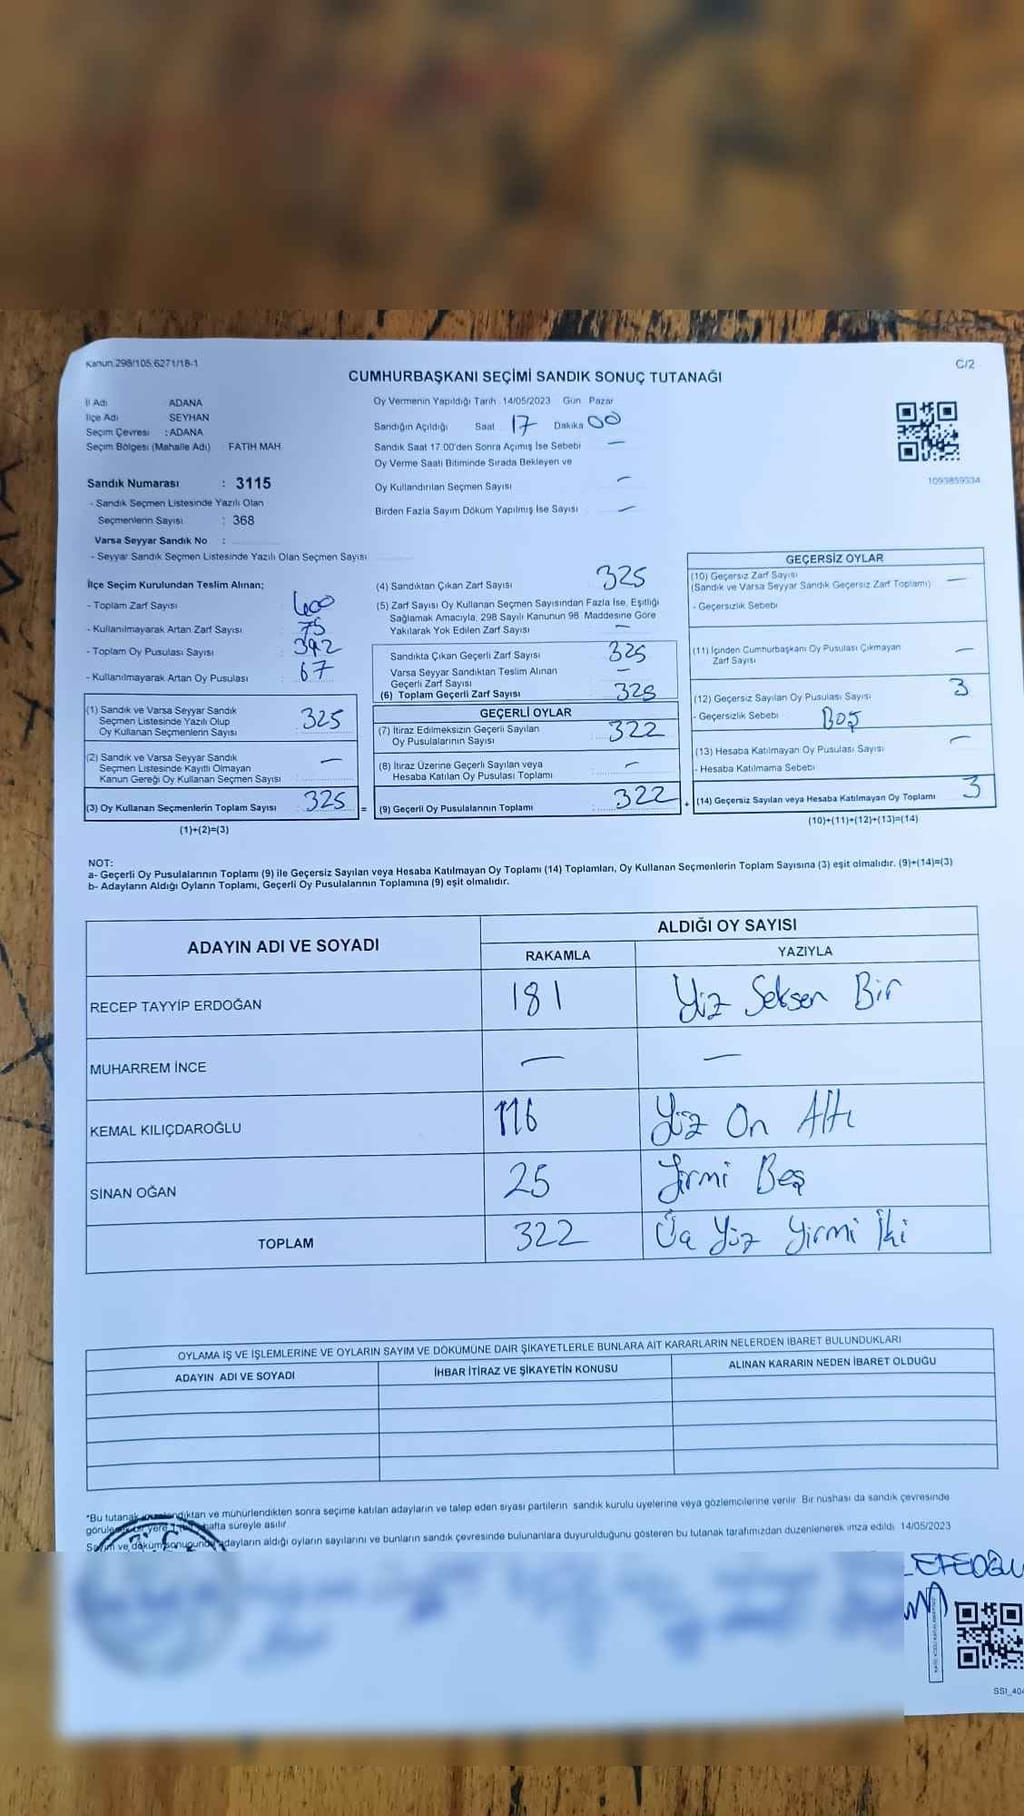 Kanun.298/105,6271/18-1
C/2
CUMHURBAŞKANI SEÇİMİ SANDIK SONUÇ TUTANAĞI
İl Adı ADANA
İlçe Adı SEYHAN
Seçim Çevresi : ADANA
Seçim Bölgesi (Mahalle Adı) FATİH MAH.
Oy Vermenin Yapıldığı Tarih : 14/05/2023 Gün Pazar
Sandığın Açıldığı Saat 17 Dakika 00
Sandık Saat 17.00'den Sonra Açımış İse Sebebi —
Oy Verme Saati Bitiminde Sırada Bekleyen ve
Oy Kullandırılan Seçmen Sayısı —
Birden Fazla Sayım Döküm Yapılmış İse Sayısı —
1093859334
Sandık Numarası : 3115
- Sandık Seçmen Listesinde Yazılı Olan
Seçmenlerin Sayısı : 368
Varsa Seyyar Sandık No :
- Seyyar Sandık Seçmen Listesinde Yazılı Olan Seçmen Sayısı
İlçe Seçim Kurulundan Teslim Alınan;
- Toplam Zarf Sayısı 400
- Kullanılmayarak Artan Zarf Sayısı 75
- Toplam Oy Pusulası Sayısı 392
- Kullanılmayarak Artan Oy Pusulası 67
(1) Sandık ve Varsa Seyyar Sandık
Seçmen Listesinde Yazılı Olup
Oy Kullanan Seçmenlerin Sayısı 325
(2) Sandık ve Varsa Seyyar Sandık
Seçmen Listesinde Kayıtlı Olmayan
Kanun Gereği Oy Kullanan Seçmen Sayısı —
(3) Oy Kullanan Seçmenlerin Toplam Sayısı 325 =
(1)+(2)=(3)
(4) Sandıktan Çıkan Zarf Sayısı 325
(5) Zarf Sayısı Oy Kullanan Seçmen Sayısından Fazla İse, Eşitliği
Sağlamak Amacıyla, 298 Sayılı Kanunun 98. Maddesine Göre
Yakılarak Yok Edilen Zarf Sayısı —
Sandıkta Çıkan Geçerli Zarf Sayısı 325
Varsa Seyyar Sandıktan Teslim Alınan
Geçerli Zarf Sayısı —
(6) Toplam Geçerli Zarf Sayısı 325
GEÇERLİ OYLAR
(7) İtiraz Edilmeksizin Geçerli Sayılan
Oy Pusulalarının Sayısı 322
(8) İtiraz Üzerine Geçerli Sayılan veya
Hesaba Katılan Oy Pusulası Toplamı —
(9) Geçerli Oy Pusulalarının Toplamı 322 +
GEÇERSİZ OYLAR
(10) Geçersiz Zarf Sayısı
(Sandık ve Varsa Seyyar Sandık Geçersiz Zarf Toplamı) —
- Geçersizlik Sebebi
(11) İçinden Cumhurbaşkanı Oy Pusulası Çıkmayan
Zarf Sayısı —
(12) Geçersiz Sayılan Oy Pusulası Sayısı 3
- Geçersizlik Sebebi Boş
(13) Hesaba Katılmayan Oy Pusulası Sayısı —
- Hesaba Katılmama Sebebi
(14) Geçersiz Sayılan veya Hesaba Katılmayan Oy Toplamı 3
(10)+(11)+(12)+(13)=(14)
NOT:
a- Geçerli Oy Pusulalarının Toplamı (9) ile Geçersiz Sayılan veya Hesaba Katılmayan Oy Toplamı (14) Toplamları, Oy Kullanan Seçmenlerin Toplam Sayısına (3) eşit olmalıdır. (9)+(14)=(3)
b- Adayların Aldığı Oyların Toplamı, Geçerli Oy Pusulalarının Toplamına (9) eşit olmalıdır.
ADAYIN ADI VE SOYADI
ALDIĞI OY SAYISI
RAKAMLA YAZIYLA
RECEP TAYYİP ERDOĞAN 181 Yüz Seksen Bir
MUHARREM İNCE — —
KEMAL KILIÇDAROĞLU 116 Yüz On Altı
SİNAN OĞAN 25 Yirmi Beş
TOPLAM 322 Üç Yüz Yirmi İki
OYLAMA İŞ VE İŞLEMLERİNE VE OYLARIN SAYIM VE DÖKÜMÜNE DAİR ŞİKAYETLERLE BUNLARA AİT KARARLARIN NELERDEN İBARET BULUNDUKLARI
ADAYIN ADI VE SOYADI İHBAR İTİRAZ VE ŞİKAYETİN KONUSU ALINAN KARARIN NEDEN İBARET OLDUĞU
*Bu tutanak ve mühürlendikten sonra seçime katılan adayların ve talep eden siyasi partilerin sandık kurulu üyelerine veya gözlemcilerine verilir. Bir nüshası da sandık çevresinde
bir yere hafta süreyle asılır
Sayım ve döküm sonucunda adayların aldığı oyların sayılarını ve bunların sandık çevresinde bulunanlara duyurulduğunu gösteren bu tutanak tarafımızdan düzenlenerek imza edildi. 14/05/2023
EFEOĞLU